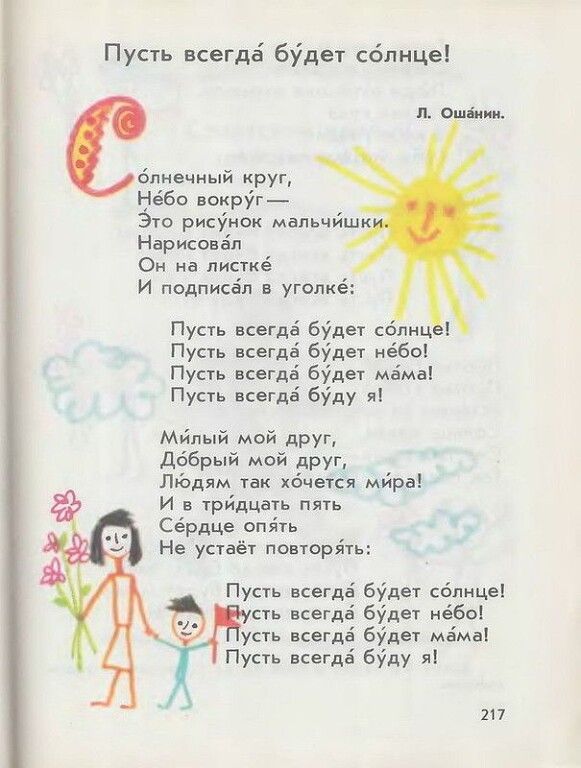 Пусть всегда́ бу́дет со́лнце!
Л. Оша́нин.
Со́лнечный круг,
Не́бо вокру́г—
Э́то рису́нок мальчи́шки.
Нарисова́л
Он на листке́
И подписа́л в уголке́:
Пусть всегда́ бу́дет со́лнце!
Пусть всегда́ бу́дет не́бо!
Пусть всегда́ бу́дет ма́ма!
Пусть всегда́ бу́ду я!
Ми́лый мой друг,
До́брый мой друг,
Лю́дям так хо́чется ми́ра!
И в три́дцать пять
Се́рдце опя́ть
Не устаёт повторя́ть:
Пусть всегда́ бу́дет со́лнце!
Пусть всегда́ бу́дет не́бо!
Пусть всегда́ бу́дет ма́ма!
Пусть всегда́ бу́ду я!
217